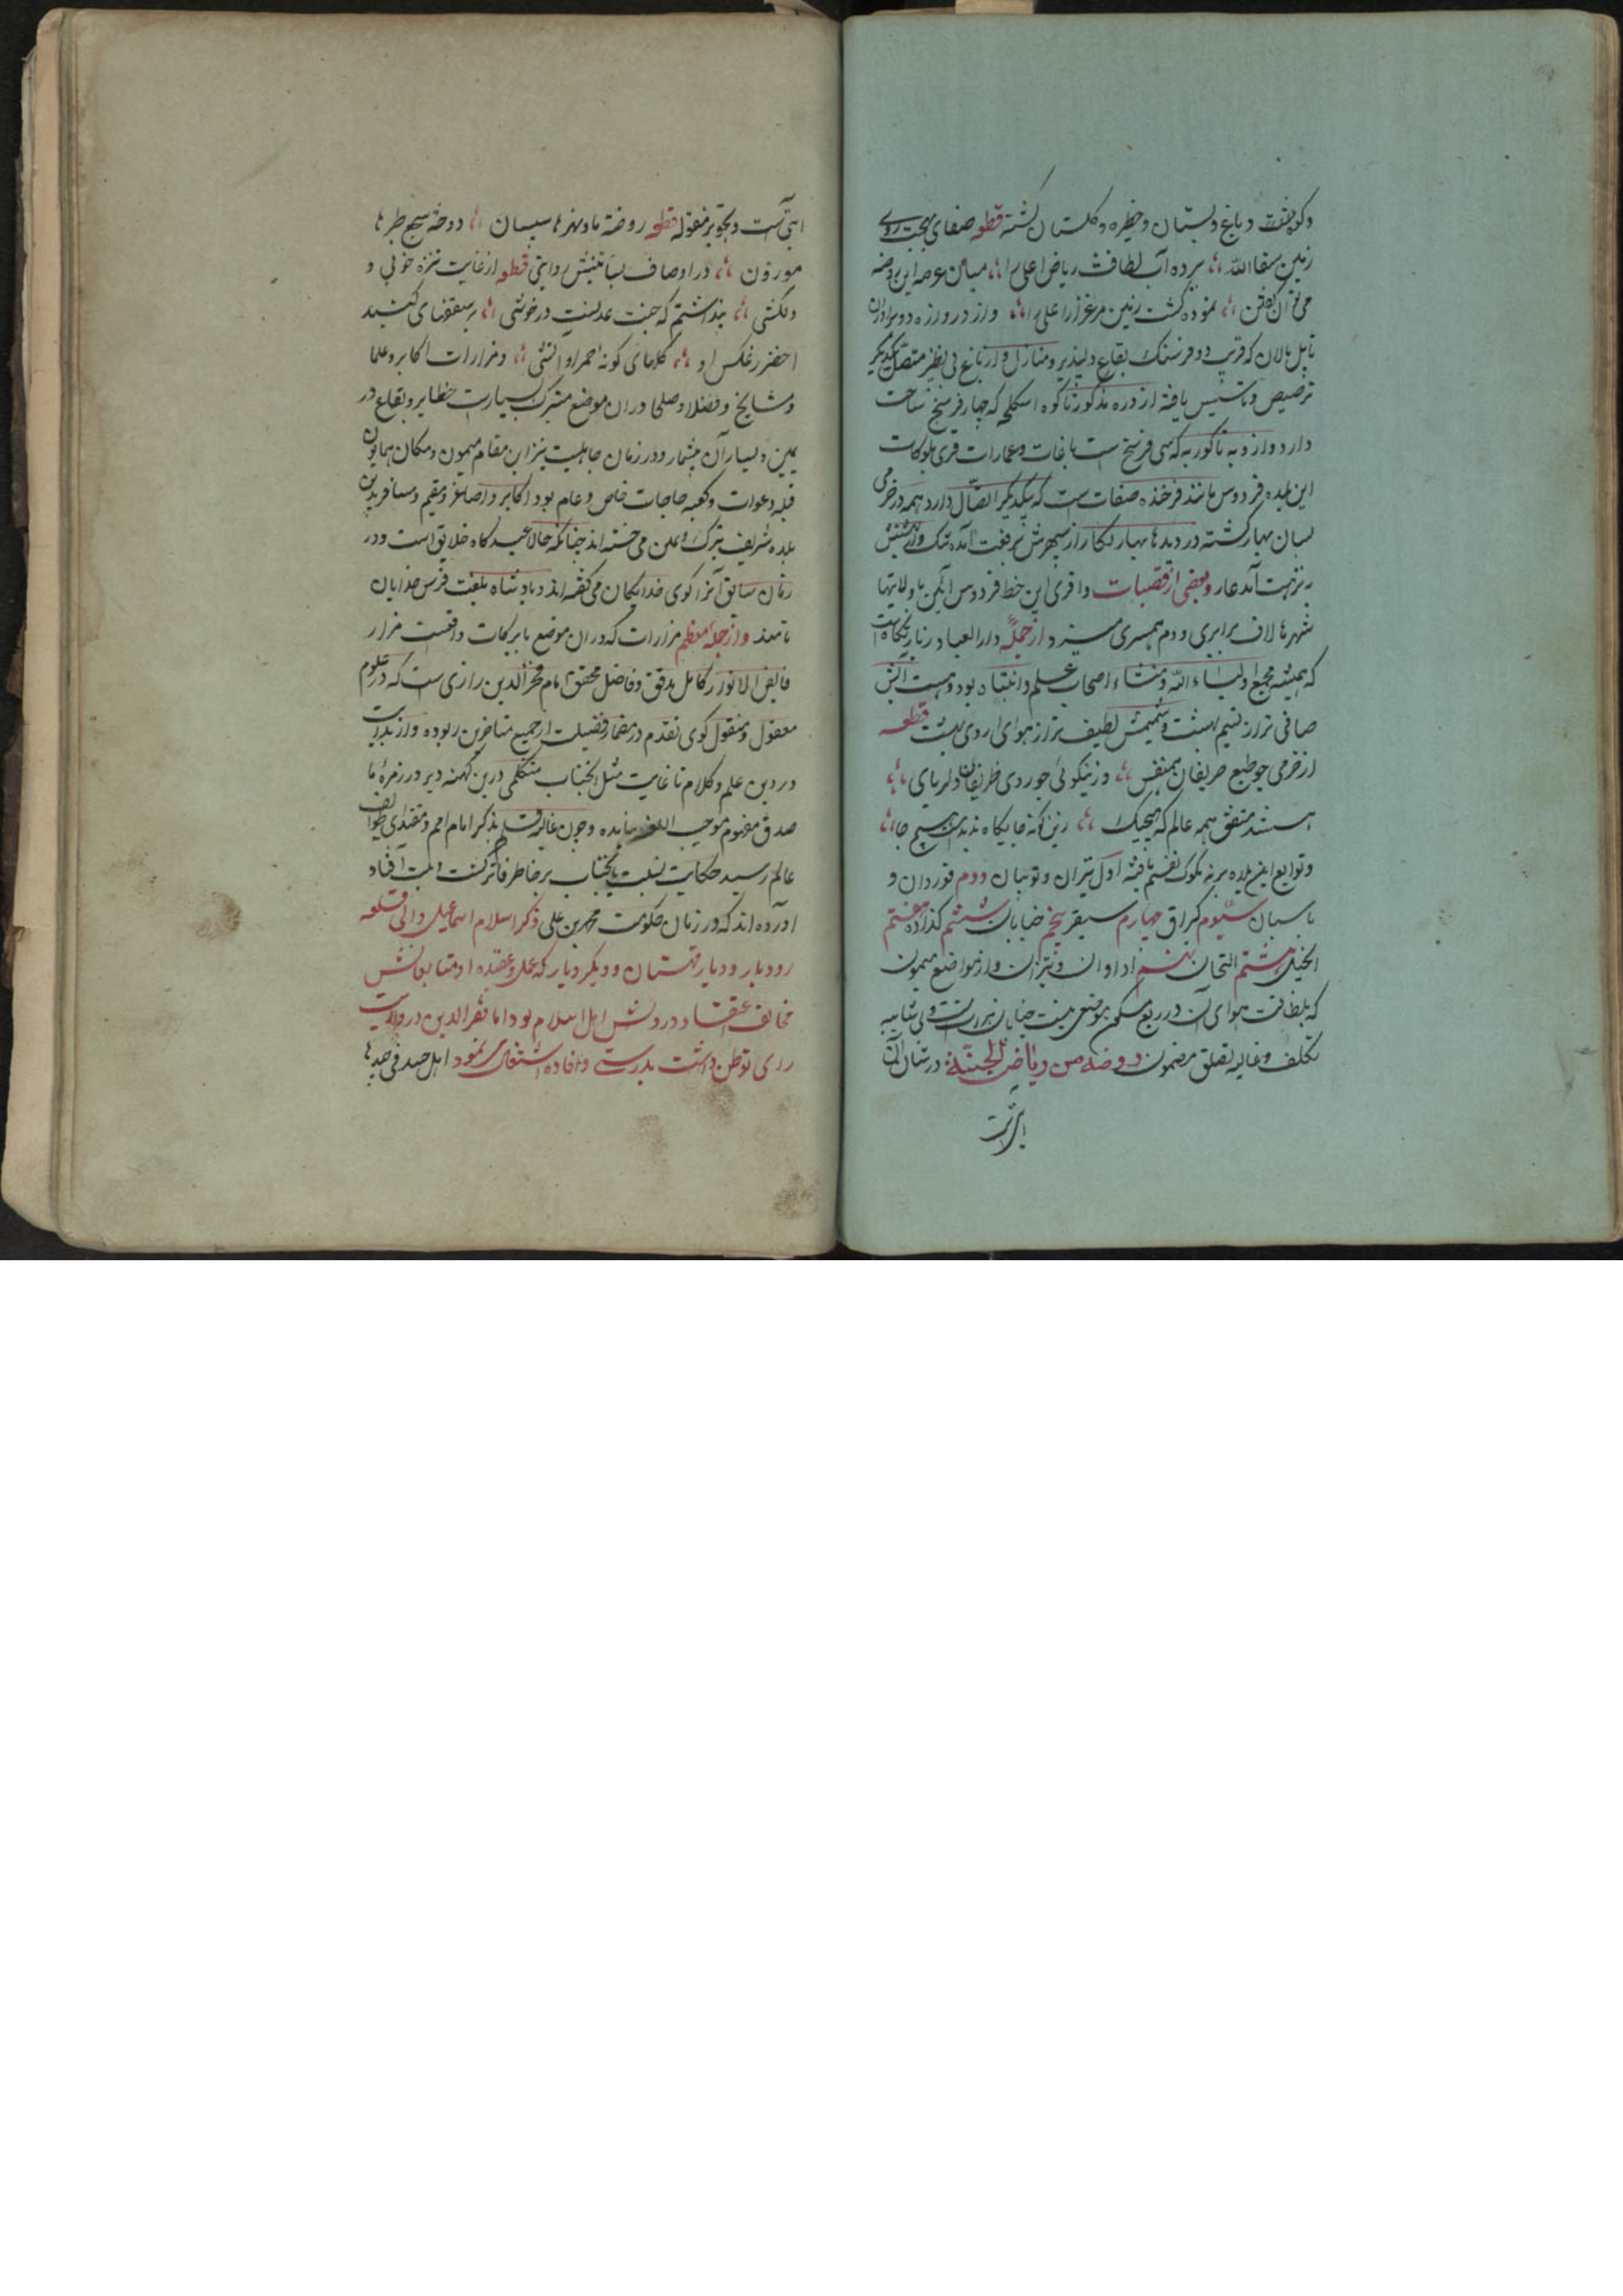 و کوه هفت و باغ و بستان و خطیره و گلستان گشته قطعه صفای بهجت روی
زمین سقا الله برده آب لطافت ریاض اعلی را میان عرصه این روضه
می توان گفتن نموده گشت زمین مرغزار اعلی را و از در دروازه دو برادران
تا پل مالان که قریب دو فرسنگ بقاع دلپذیر و منازل و ارباغ بی نظیر متصل یکدیگر
ترصیص و تأسیس یافته از دره مذکور تا کوه اسکلچه که چهار فرسخ مساحت
دارد و از وبه تا کوربه که سی فرسخ است باغات و عمارات قری بلوکات
این بلده فردوس مانند فرخنده صفات ست که بیکدیگر اتصال دارد همه در خرمی
بسان بهار گشته در دیدها بهار نگار از سپهرش برفعت آمده ننگ و از بهشتش
به نزهت آمد عار و بعضی از قصبات و اقری این خط فردوس آئین با ولایتها
شهرها لاف برابری و دم همسری میزد از جمله دار العباد زیارتگاه است
که همیشه مجمع اولیاء الله و منشاء اصحاب علم و انتباه بود و هست آبش
صافی تر از نسیم بهشت و شمیمش لطیف تر از هوای اردی بهشت قطعه
از خرمی چو طبع حریفان همنفس وز نیکوئی چو روی ظریفان دلربای
هستند متفق همه عالم که هیچیک زین گونه جایگاه ندیدست هیچ جا
و توابع این بلده بر نه بلوک تقسیم یافته اول تیزان و تونیان دوم قوردان و
باسبان سیوم کبراق چهارم سبقر پنجم خیابان ششم گذاره هفتم
الخیل هشتم النجان نهم ادوان و تیزان و از مواضع میمون
که بلطافت هوای آن در ربع مسکون موضعی نیست خیابان هرات ست و بی شایبه
تکلف و غایله تصلف مضمون روضة من ریاض الجنة در شان آن
آیتی است
آیتی است و بجویز منقوله قطعه روضة ماء نهرها سلسال دوحة سجع طیرها
موزون در اوصاف بساتینش روایتی قطعه از غایت نزه خوبی و
دلکشی پنداشتم که جنت عدلست در خوشی بر سقفهای گنبد
اخضر ز عکس او گلهای گونه احمر او آتشی و مزارات اکابر و علما
و مشایخ و فضلا و صلحا در آن موضع متبرک بسیارست حظایر و بقاع در
یمین و یسار آن بیشمار و در زمان جاهلیت نیز این مقام میمون و مکان همایون
قبله دعوات و کعبه حاجات خاص و عام بود اکابر و اصاغر و مقیم و مسافر بدین
بلده شریف تبرک و تیمن می جسته اند چنانکه حالا عیدگاه خلایق است و در
زمان سابق آنرا کوی خدایگان می گفته اند و پادشاه بلغت فرس خدایگان
نامند و از جمله معظم مزارات که در آن موضع با برکات واقعست مزار
فایض الانوار کامل مدقق و فاضل محقق امام فخر الدین رازی ست که در علوم
معقول و منقول گوی تقدم در مضمار فضیلت از جمیع متاخرین ربوده و از بدایت
در دین علم و کلام تا غایت مثل آنجناب متکلمی درین کهنه دیر در زمره ما
صدق مفهوم موجب اللغز نیامده و چون غالیه قلم بذکر امام امم و مقتدای طوایف
عالم رسید حکایت نسبت بآنجناب بر خاطر فاتر گذشت و ثبت افتاد
آورده اند که در زمان حکومت محمد بن علی ذکر اسلام اسماعیلی والی قلعه
رودبار و دیار قهستان و دیگر دیار که عمل و عقیده او متابعانش
مخالف اعتقاد و روش اهل اسلام بود امام فخر الدین در ولایت
ری توطن داشت بدرس و افاده اشتغال می نمود اهل حسد فی جیدها